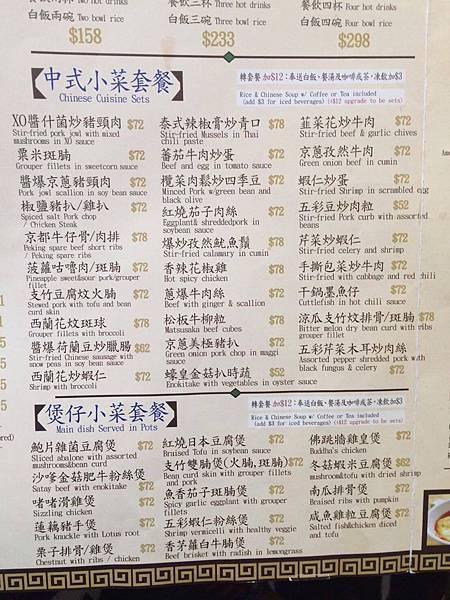 Two hot drinks
Three hot drinks
餐飲四杯 Four hot drinks
白飯兩碗 Two bowl rice
白飯三碗 Three bowl rice
白飯四碗 Four bowl rice
$158
$233
$298
【中式小菜套餐】
Chinese Cuisine Sets
轉套餐 加$12:奉送白飯、餐湯及咖啡或茶,凍飲加$3
Rice & Chinese Soup w/ Coffee or Tea included
(add $3 for iced beverages) (+$12 upgrade to be sets)
XO醬什菌炒豬頸肉 $72
Stir-fried pork jowl with mixed
mushrooms in XO sauce
粟米斑腩 $72
Grouper fillets in sweetcorn sauce
醬爆京蔥豬頸肉 $72
Pork jowl scallion in soy bean sauce
椒鹽豬扒/雞扒 $72
Spiced salt Pork chop
/ Chicken Steak
京都牛仔骨/肉排 $78
Peking spare beef short ribs
/ Peking spare ribs
菠蘿咕嚕肉/斑腩 $72
Pineapple sweet&sour pork/grouper
fillet
支竹豆腐炆火腩 $72
Stewed pork with tofu and bean
curd skin
西蘭花炆斑球 $78
Grouper fillets with broccoli
醬爆荷蘭豆炒臘腸 $62
Stir-fried Chinese sausage with
snow peas in soy bean sauce
西蘭花炒蝦仁 $72
Shrimp with broccoli
泰式辣椒膏炒青口 $78
Stir-fried Mussels in Thai
chili paste
番茄牛肉炒蛋 $72
Beef and egg in tomato sauce
欖菜肉鬆炒四季豆 $72
Minced Pork w/green bean and
black olive
紅燒茄子肉絲 $72
Eggplant& shreddedpork in
soybean sauce
爆炒孜然魷魚鬚 $78
Stir-fried calamary in cumin
香辣花椒雞 $72
Hot spicy chicken
蔥爆牛肉絲 $72
Beef with ginger & scallion
松板牛柳粒 $78
Matsusaka beef cubes
京蔥美極豬扒 $72
Green onion pork chop in maggi
sauce
蠔皇金菇扒時蔬 $52
Enokitake with vegetables in oyster sauce
韮菜花炒牛肉 $72
Stir-fried beef & garlic chives
京蔥孜然牛肉 $72
Green onion beef in cumin
蝦仁炒蛋 $72
Stir-fried Shrimp in scrambled egg
五彩豆炒肉粒 $52
Stir-fried Pork curb with assorted
beans
芹菜炒蝦仁 $72
Stir-fried celery and shrimp
手撕包菜炒牛肉 $72
Stir-fried with cabbage and red chili
干鍋墨魚仔 $72
Cuttlefish in hot chili sauce
涼瓜支竹炆排骨/斑腩 $78
Bitter melon dry bean curd with ribs
grouper fillet
五彩芹菜木耳炒肉絲
Assorted pepper shredded pork with
black fungus & celery $72
【煲仔小菜套餐】
Main dish Served in Pots
轉套餐 加$12:奉送白飯、餐湯及咖啡或茶,凍飲加$3
Rice & Chinese Soup w/ Coffee or Tea included
(add $3 for iced beverages) (+$12 upgrade to be sets)
鮑片雜菌豆腐煲 $72
Sliced abalone with assorted
mushrooms&bean curd
沙嗲金菇肥牛粉絲煲 $72
Satay beef with enokitake
啫啫滑雞煲 $72
Sizzling chicken
蓮藕豬手煲 $72
Pork knuckle with Lotus root
栗子排骨/雞煲 $72
Chestnut with ribs / chicken
紅燒日本豆腐煲 $72
Braised Tofu in soybean sauce
支竹雙腩煲(火腩,斑腩) $72
Bean curd skin with grouper fillets
and pork
魚香茄子斑腩煲 $72
Spicy garlic eggplant with grouper
fillets
五彩蝦仁粉絲煲 $72
Shrimp vermicelli with healthy veggie
香茅蘿白牛腩煲 $72
Beef brisket with radish in lemongrass
佛跳牆雞皇煲 $72
Buddha's chicken
冬菇蝦米豆腐煲 $62
mushroom&tofu with dried shrimp
南瓜排骨煲 $72
Braised ribs with pumpkin
咸魚雞粒豆腐煲 $72
Salted fish&chicken diced
and tofu